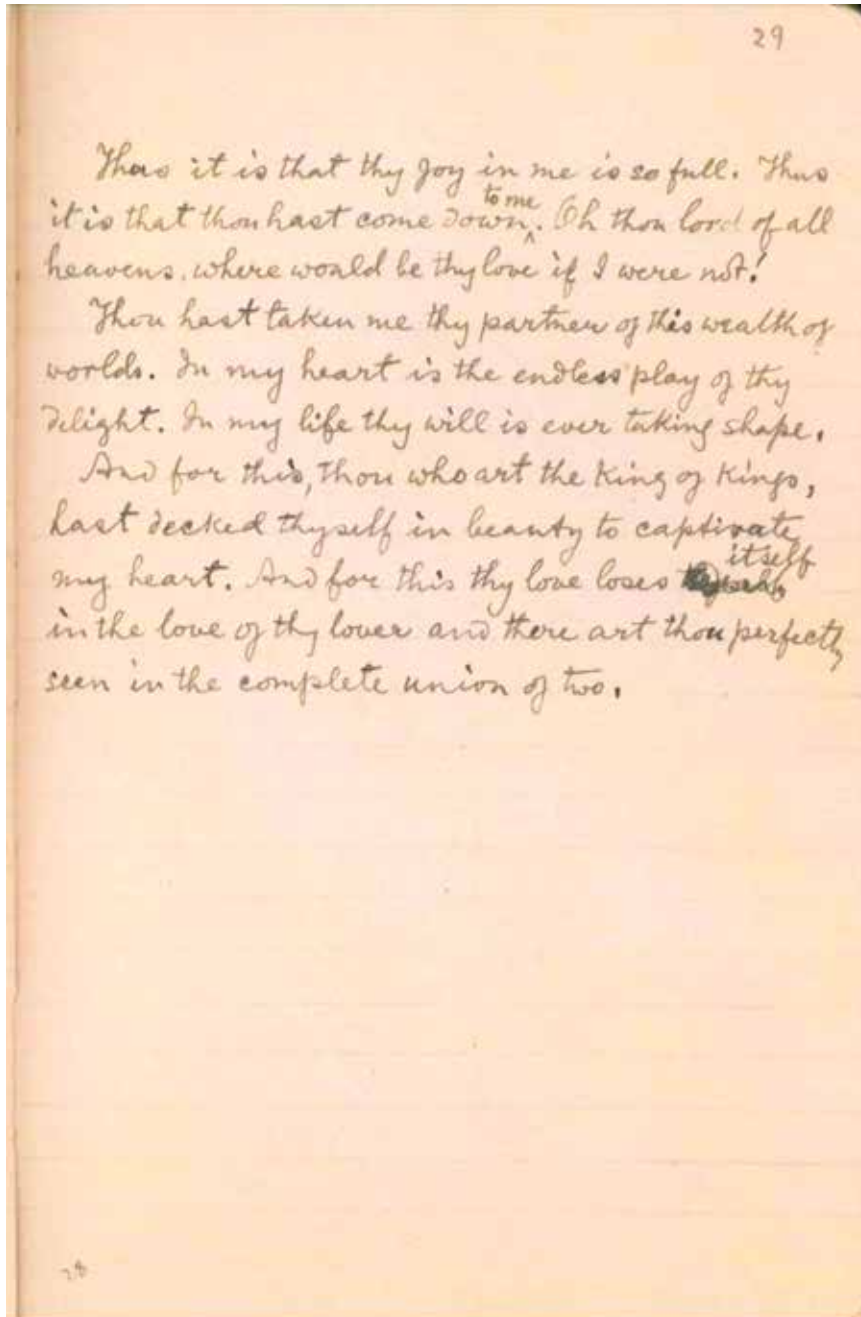 29
Thus it is that thy joy in me is so full. Thus
it is that thou hast come down to me. Oh thou lord of all
heavens, where would be thy love if I were not!
Thou hast taken me thy partner of this wealth of
worlds. In my heart is the endless play of thy
delight. In my life thy will is ever taking shape.
And for this, thou who art the King of Kings,
hast decked thyself in beauty to captivate
my heart. And for this thy love loses itself
in the love of thy lover and there art thou perfectly
seen in the complete union of two.
28